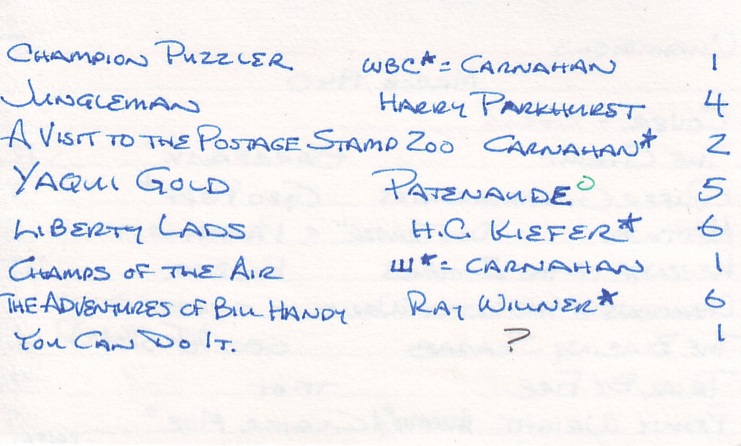 CHAMPION PUZZLER WBC*= CARNAHAN 1
JUNGLEMAN HARRY PARKHURST 4
A VISIT TO THE POSTAGE STAMP ZOO CARNAHAN* 2
YAQUI GOLD PATENAUDE° 5
LIBERTY LADS H.C. KIEFER* 6
CHAMPS OF THE AIR W*= CARNAHAN 1
THE ADVENTURES OF BILL HANDY RAY WILLNER* 6
YOU CAN DO IT. ? 1